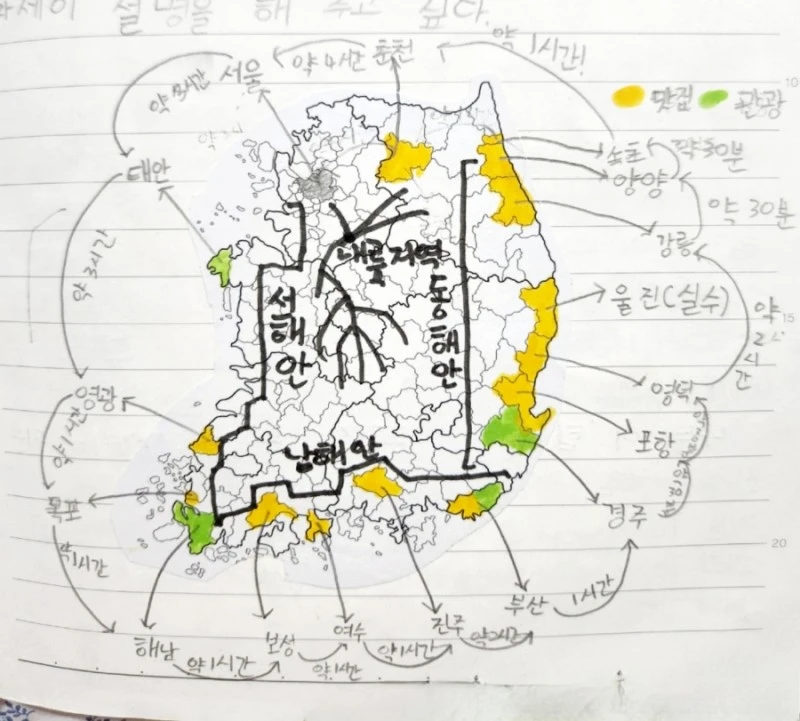 설명을 해 주고 싶다.
약 1시간!
춘천
약 4시간
서울
맛집
관광
10
속초
약 30분
양양
태안
약 30분
강릉
내륙지역
약 3시간
서해안
동해안
울진(실수)
약 2시간
15
영덕
영광
약 1시간
포항
남해안
목포
경주
약 1시간
20
부산
1시간
해남
보성
여수
진주
약 1시간
약 1시간
약 1시간